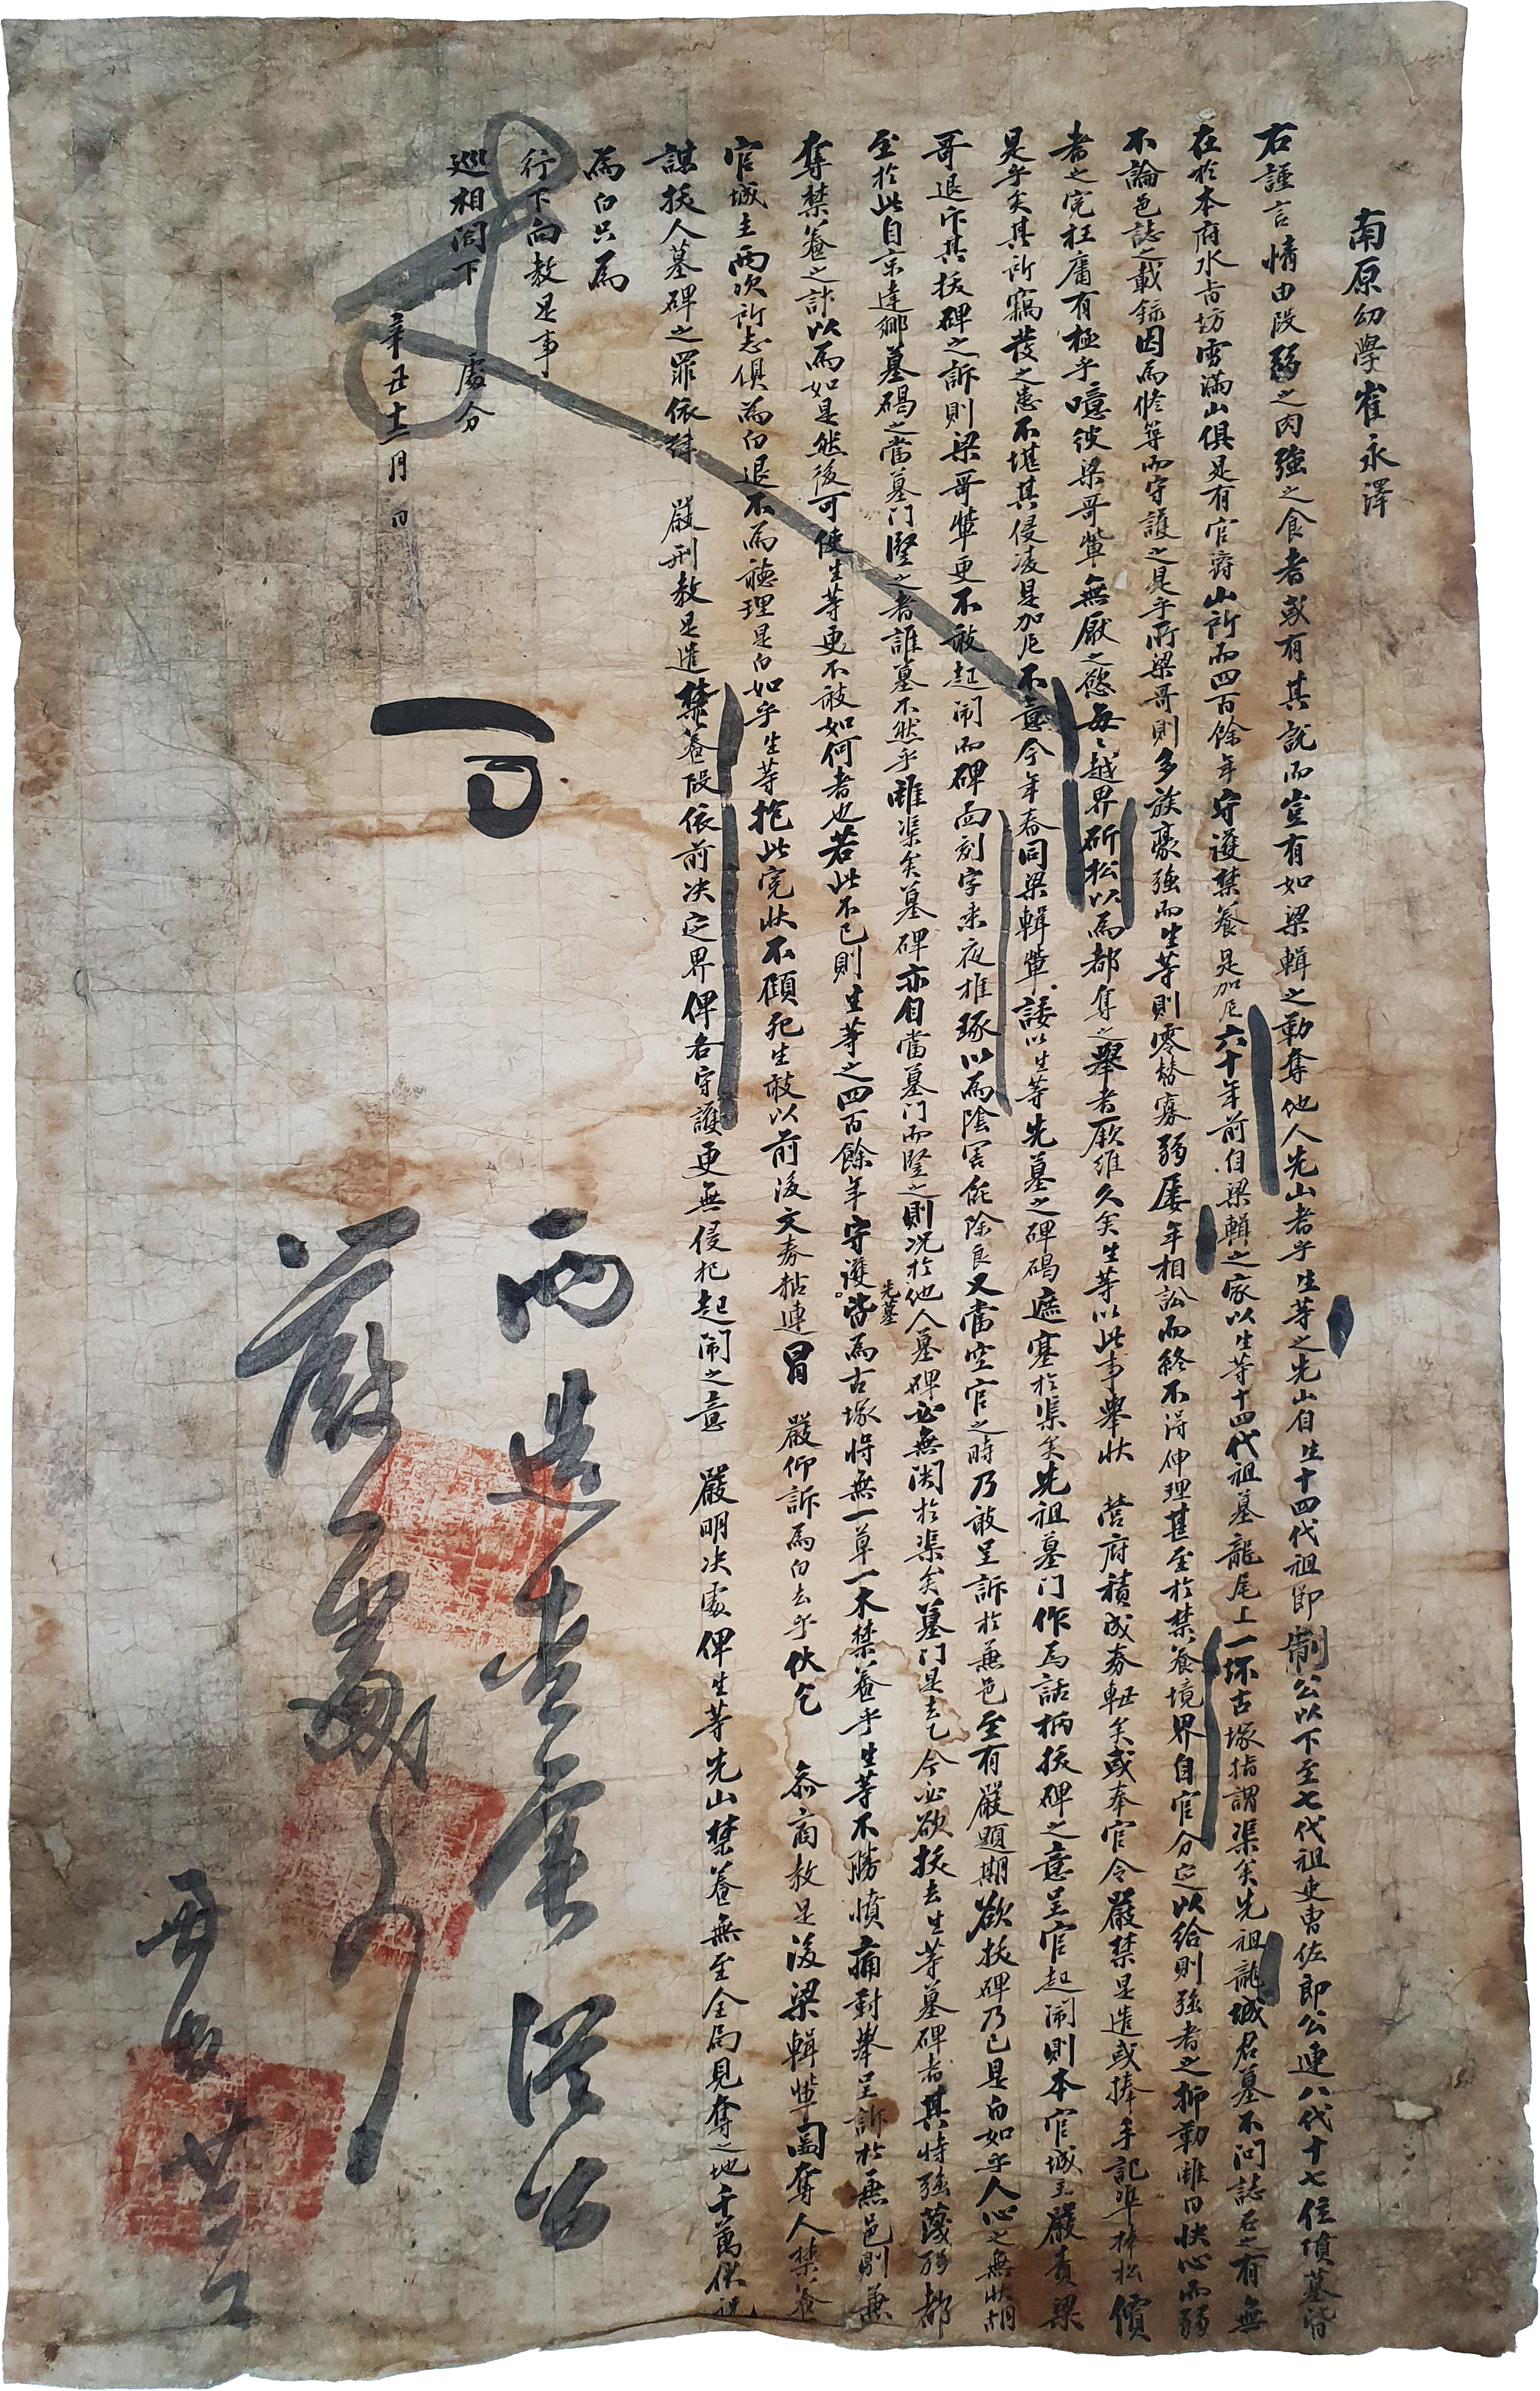 南原幼學崔永澤
右謹言情由段弱之肉強之食者或有其說而豈有如梁輯之勒奪他人先山者乎生等之先山自生十四代祖即制公以下至七代祖吏曹佐郎公連八代十七位墳墓皆
在於本府水旨坊雪滿山俱是有官爵山所而四百餘年守護禁養是加尼六十年前自梁輯之家以生等十四代祖墓龍尾上一坏古塚指謂渠矣先祖龍城君墓不問誌石之有無
不論邑誌之載錄因為修筭而守護之是乎所梁哥則多族豪強而生等則零替寡弱屢年相訟而終不得伸理甚至於禁養境界自官分定以給則強者之抑勒雖曰快心而弱
者之寃枉庸有極乎噫彼梁哥輩無厭之慾每々越界斫松以為都奪之舉者厥維久矣生等以此事舉狀 營府積成券軸矣或奉官令嚴禁是遣或捧手記準捧松價
是乎矣其所竊發之患不堪其侵凌是加尼不意今年春同梁輯輩諉以生等先墓之碑碣遮塞於渠矣先祖墓門作為話柄拔碑之意呈官起鬧則本官城主嚴責梁
哥退斥其拔碑之訴則梁哥輩更不敢起鬧而碑面刻字乘夜推琢以為陰害能除良又當空官之時乃敢呈訴於兼邑至有嚴題期欲拔碑乃已是白如乎人心之無狀胡
至於此自京違鄉墓碣之當墓門竪之者誰墓不然乎雖渠矣墓碑亦自當墓門而竪之則況於他人墓碑必無関於渠矣墓門是去乙今必欲拔去生等先墓墓碑者其恃強蔑弱都
奪禁養之計以為如是然後可使生等更不敢如何者也若此不已則生等之四百餘年守護皆為古塚將無一草一木禁養乎生等不勝憤痛對舉呈訴於兼邑則兼
官城主兩次所志俱為白退不為聽理是白如乎生等抱此寃狀不顧死生敢以前後文券粘連冒 嚴仰訴為白去乎伏乞 參商教是後梁輯輩圖奪人禁養
謀拔人墓碑之罪依律 嚴刑教是遣禁養段依前決定界俾各守護更無侵犯起鬧之意 嚴明決處俾生等先山禁養無至全局見奪之地千萬伏祝
為白只為
行下向教是事
巡相閤下 處分
辛丑十二月 日